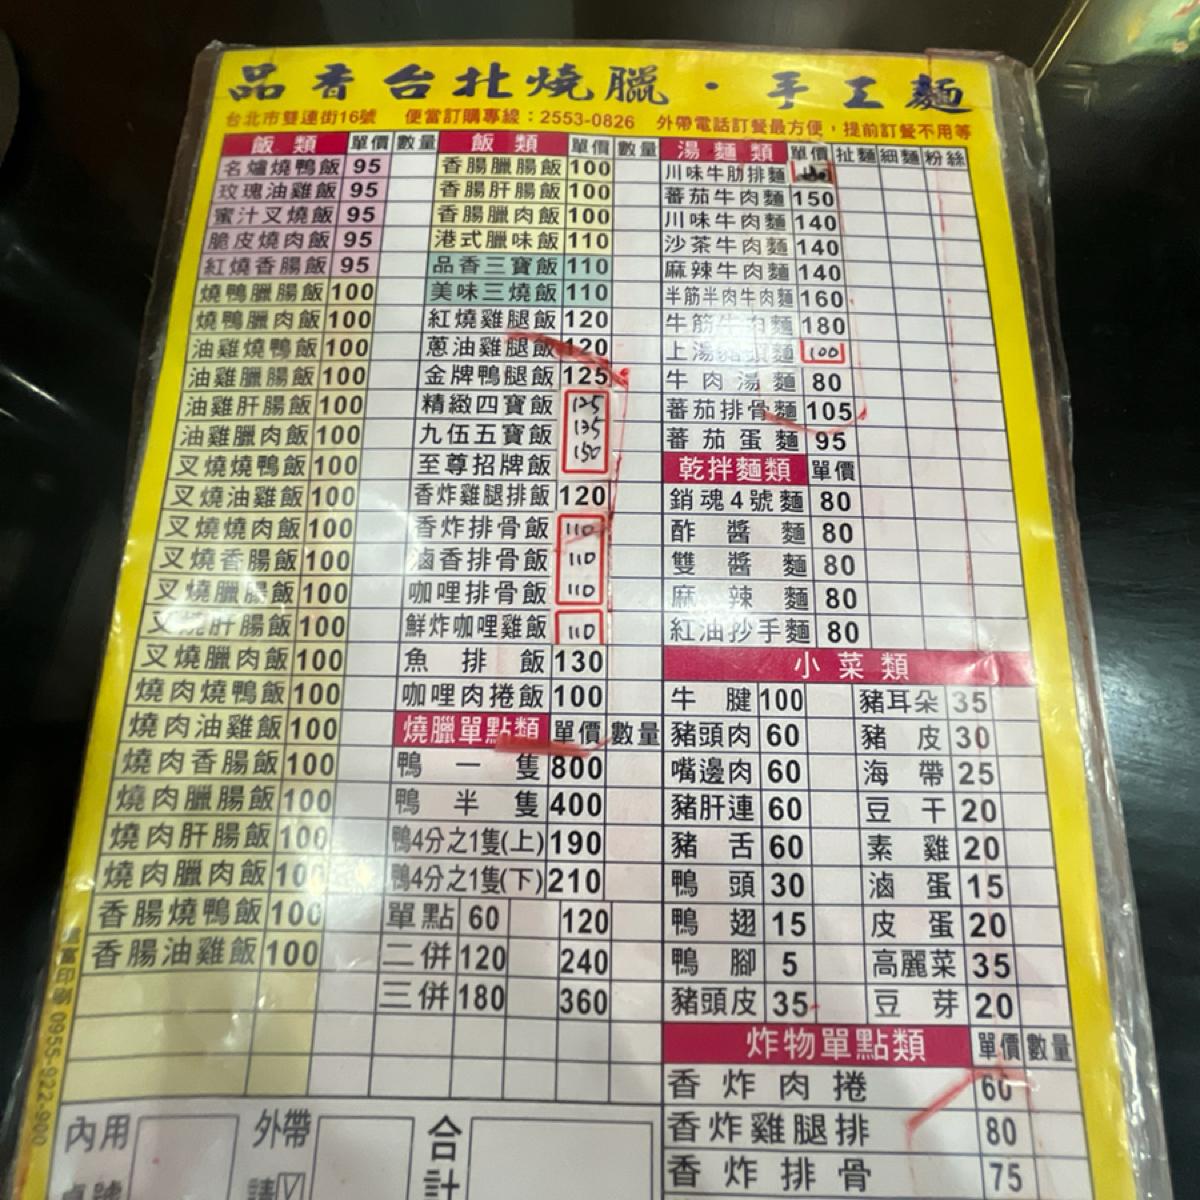 品香台北燒臘・手工麵
台北市雙連街16號 便當訂購專線：2553-0826 外帶電話訂餐最方便，提前訂餐不用等
飯類 單價 數量
名爐燒鴨飯 95
玫瑰油雞飯 95
蜜汁叉燒飯 95
脆皮燒肉飯 95
紅燒香腸飯 95
燒鴨臘腸飯 100
燒鴨臘肉飯 100
油雞燒鴨飯 100
油雞臘腸飯 100
油雞肝腸飯 100
油雞臘肉飯 100
叉燒燒鴨飯 100
叉燒油雞飯 100
叉燒燒肉飯 100
叉燒香腸飯 100
叉燒臘腸飯 100
叉燒肝腸飯 100
叉燒臘肉飯 100
燒肉燒鴨飯 100
燒肉油雞飯 100
燒肉香腸飯 100
燒肉臘腸飯 100
燒肉肝腸飯 100
燒肉臘肉飯 100
香腸燒鴨飯 100
香腸油雞飯 100
飯類 單價 數量
香腸臘腸飯 100
香腸肝腸飯 100
香腸臘肉飯 100
港式臘味飯 110
品香三寶飯 110
美味三燒飯 110
紅燒雞腿飯 120
蔥油雞腿飯 120
金牌鴨腿飯 125
精緻四寶飯 125
九伍五寶飯 135
至尊招牌飯 150
香炸雞腿排飯 120
香炸排骨飯 110
滷香排骨飯 110
咖哩排骨飯 110
鮮炸咖哩雞飯 110
魚排飯 130
咖哩肉捲飯 100
燒臘單點類 單價 數量
鴨一隻 800
鴨半隻 400
鴨4分之1隻(上) 190
鴨4分之1隻(下) 210
單點 60 120
二併 120 240
三併 180 360
湯麵類 單價 扯麵 細麵 粉絲
川味牛肋排麵
蕃茄牛肉麵 150
川味牛肉麵 140
沙茶牛肉麵 140
麻辣牛肉麵 140
半筋半肉牛肉麵 160
牛筋牛肉麵 180
上湯豬頭麵 100
牛肉湯麵 80
蕃茄排骨麵 105
蕃茄蛋麵 95
乾拌麵類 單價
銷魂4號麵 80
酢醬麵 80
雙醬麵 80
麻辣麵 80
紅油抄手麵 80
小菜類
牛腱 100 豬耳朵 35
豬頭肉 60 豬皮 30
嘴邊肉 60 海帶 25
豬肝連 60 豆干 20
豬舌 60 素雞 20
鴨頭 30 滷蛋 15
鴨翅 15 皮蛋 20
鴨腳 5 高麗菜 35
豬頭皮 35 豆芽 20
炸物單點類 單價 數量
香炸肉捲 60
香炸雞腿排 80
香炸排骨 75
內用 外帶 合計
0955-922-900